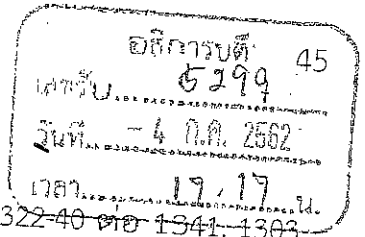 อธิการบดี 45
เลขรับ 5299
วันที่ - 4 ก.ค. 2562
เวลา 17.17 น.
322-40 ต่อ 1341, 1303